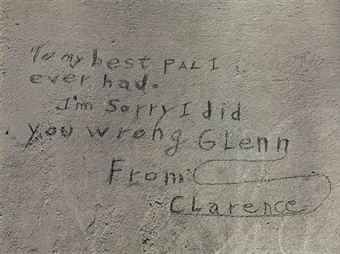 To my best PAL I
ever had.
I'm Sorry I did
you wrong GLenn
From:
CLarence